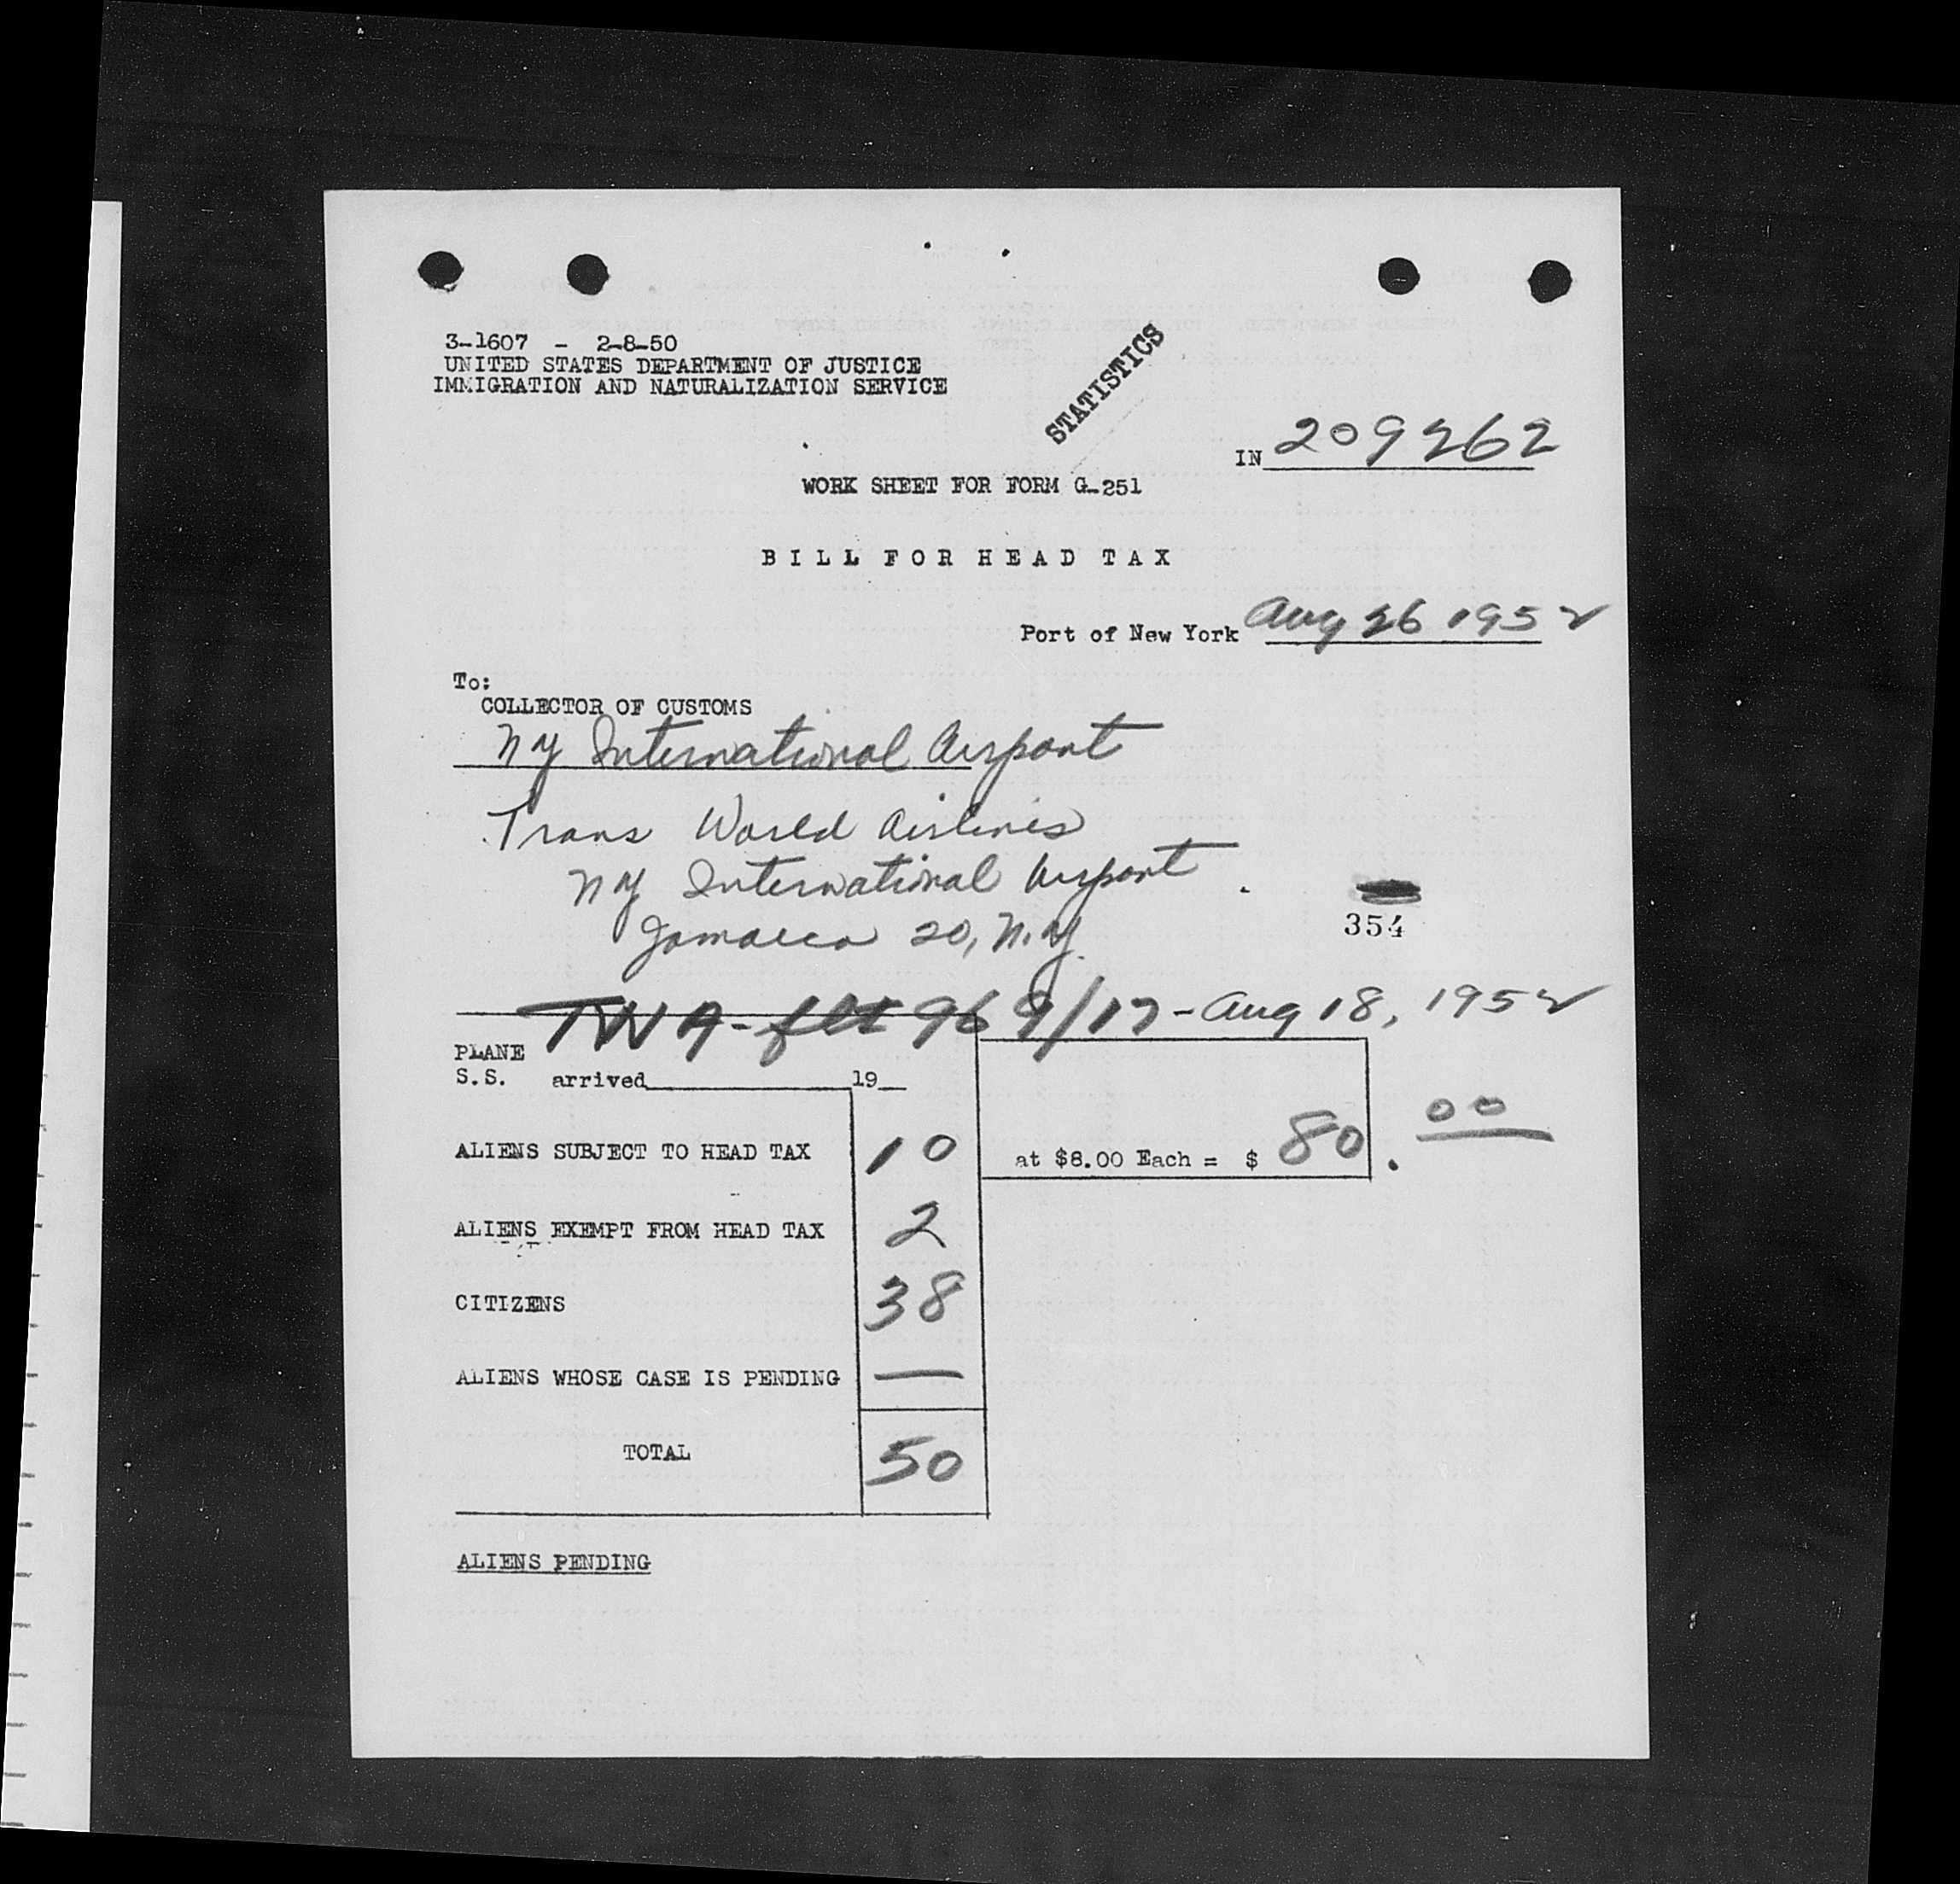 3-1607 - 2-8-50
UNITED STATES DEPARTMENT OF JUSTICE
IMMIGRATION AND NATURALIZATION SERVICE
STATISTICS
IN 209262
WORK SHEET FOR FORM G-251
BILL FOR HEAD TAX
Port of New York Aug 26 1952
To:
COLLECTOR OF CUSTOMS
NY International Airport
Trans World Airlines
NY International Airport
Jamaica 20, N.Y.
354
TWA-flt 969/17-Aug 18, 1952
PLANE
S.S. arrived 19
ALIENS SUBJECT TO HEAD TAX 10 at $8.00 Each = $ 80.00
ALIENS EXEMPT FROM HEAD TAX 2
CITIZENS 38
ALIENS WHOSE CASE IS PENDING —
TOTAL 50
ALIENS PENDING